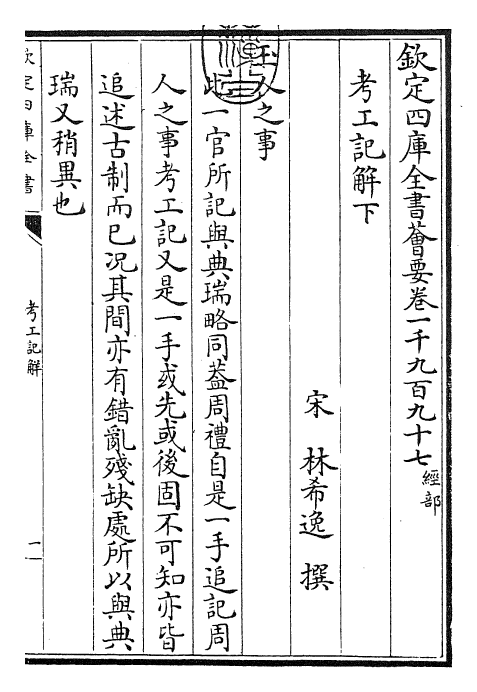 欽定四庫全書薈要卷一千九百九十七 經部
考工記解下
宋 林希逸 撰
玉人之事
此一官所記與典瑞略同蓋周禮自是一手追記周
人之事考工記又是一手或先或後固不可知亦皆
追述古制而已况其間亦有錯亂殘缺處所以與典
瑞又稍異也
欽定四庫全書
考工記解
一